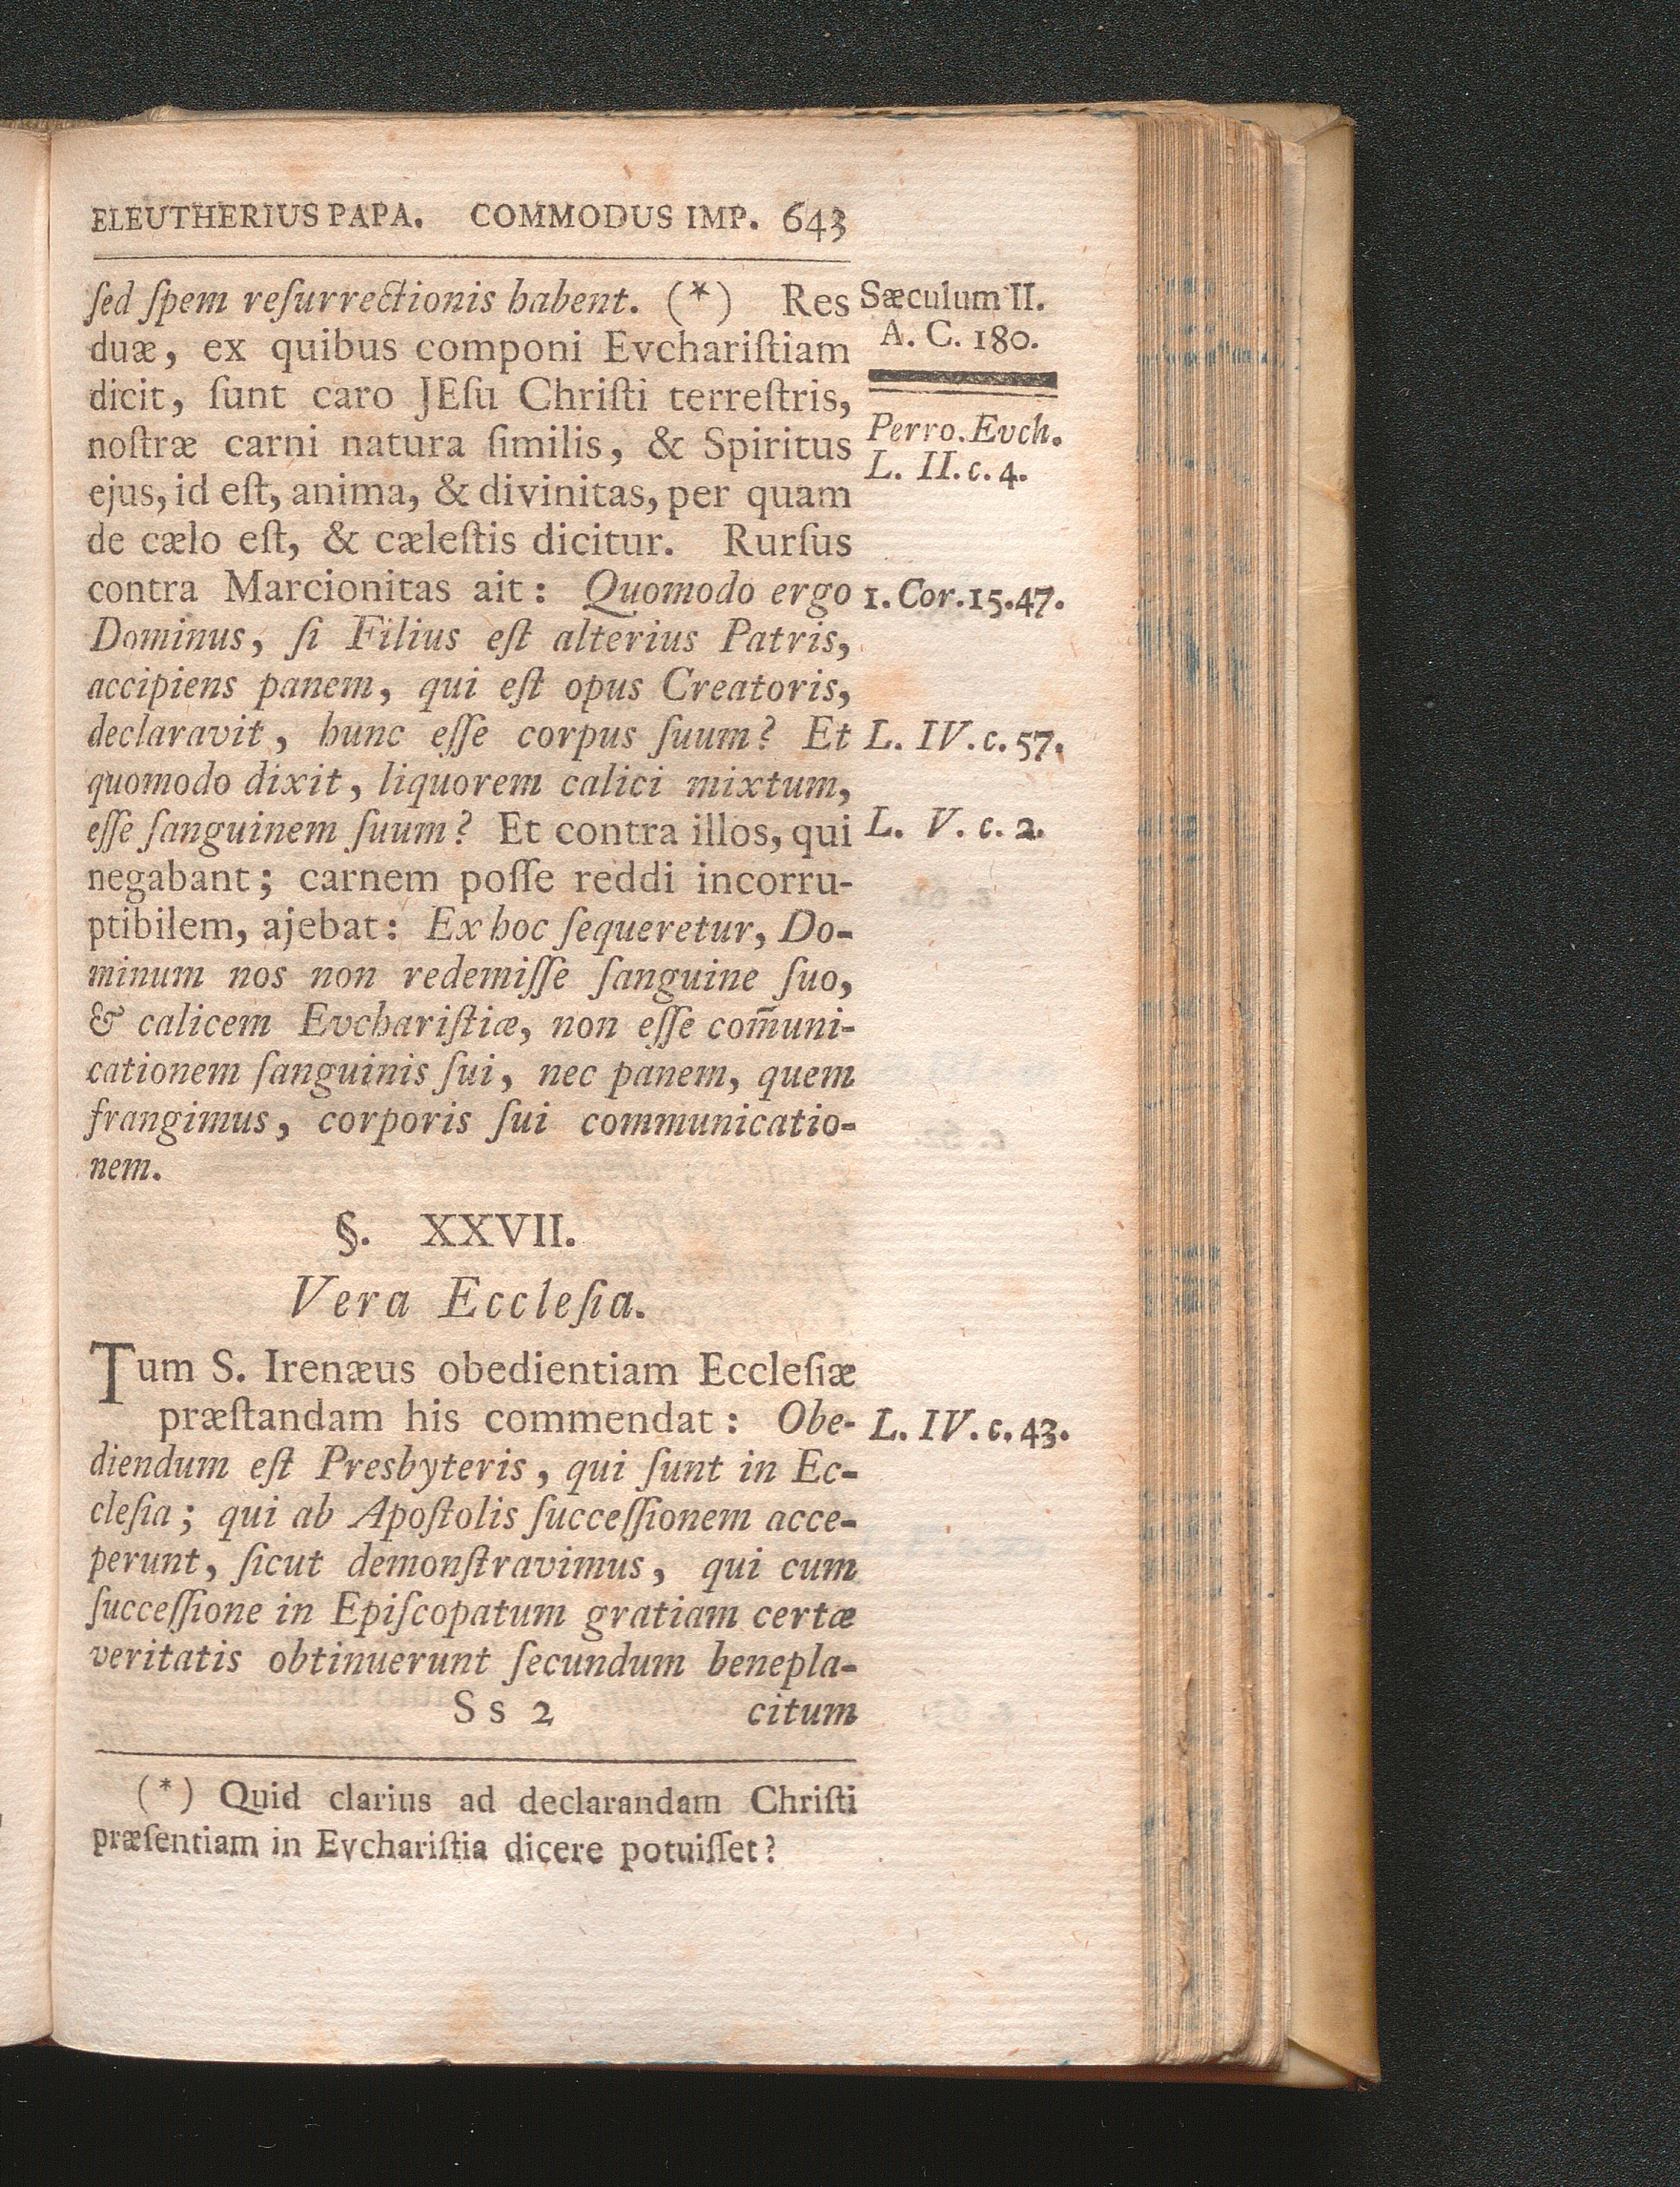 ELEUTHERIUS PAPA. COMMODUS IMP. 643
ſed ſpem reſurrectionis habent. (*) Res
duæ, ex quibus componi Evchariſtiam
dicit, ſunt caro JEſu Chriſti terreſtris,
noſtræ carni natura ſimilis, & Spiritus
ejus, id eſt, anima, & divinitas, per quam
de cælo eſt, & cæleſtis dicitur. Rurſus
contra Marcionitas ait: Quomodo ergo
Dominus, ſi Filius eſt alterius Patris,
accipiens panem, qui eſt opus Creatoris,
declaravit, hunc eſſe corpus ſuum? Et
quomodo dixit, liquorem calici mixtum,
eſſe ſanguinem ſuum? Et contra illos, qui
negabant; carnem poſſe reddi incorru-
ptibilem, ajebat: Ex hoc ſequeretur, Do-
minum nos non redemiſſe ſanguine ſuo,
& calicem Evchariſtiæ, non eſſe com̃uni-
cationem ſanguinis ſui, nec panem, quem
frangimus, corporis ſui communicatio-
nem.
Sæculum II.
A. C. 180.
Perro. Evch.
L. II. c. 4.
1. Cor. 15. 47.
L. IV. c. 57.
L. V. c. 2.
§. XXVII.
Vera Eccleſia.
Tum S. Irenæus obedientiam Eccleſiæ
præſtandam his commendat: Obe-
diendum eſt Presbyteris, qui ſunt in Ec-
cleſia; qui ab Apoſtolis ſucceſſionem acce-
perunt, ſicut demonſtravimus, qui cum
ſucceſſione in Epiſcopatum gratiam certæ
veritatis obtinuerunt ſecundum benepla-
L. IV. c. 43.
S s 2 citum
(*) Quid clarius ad declarandam Chriſti
præſentiam in Evchariſtia dicere potuiſſet?